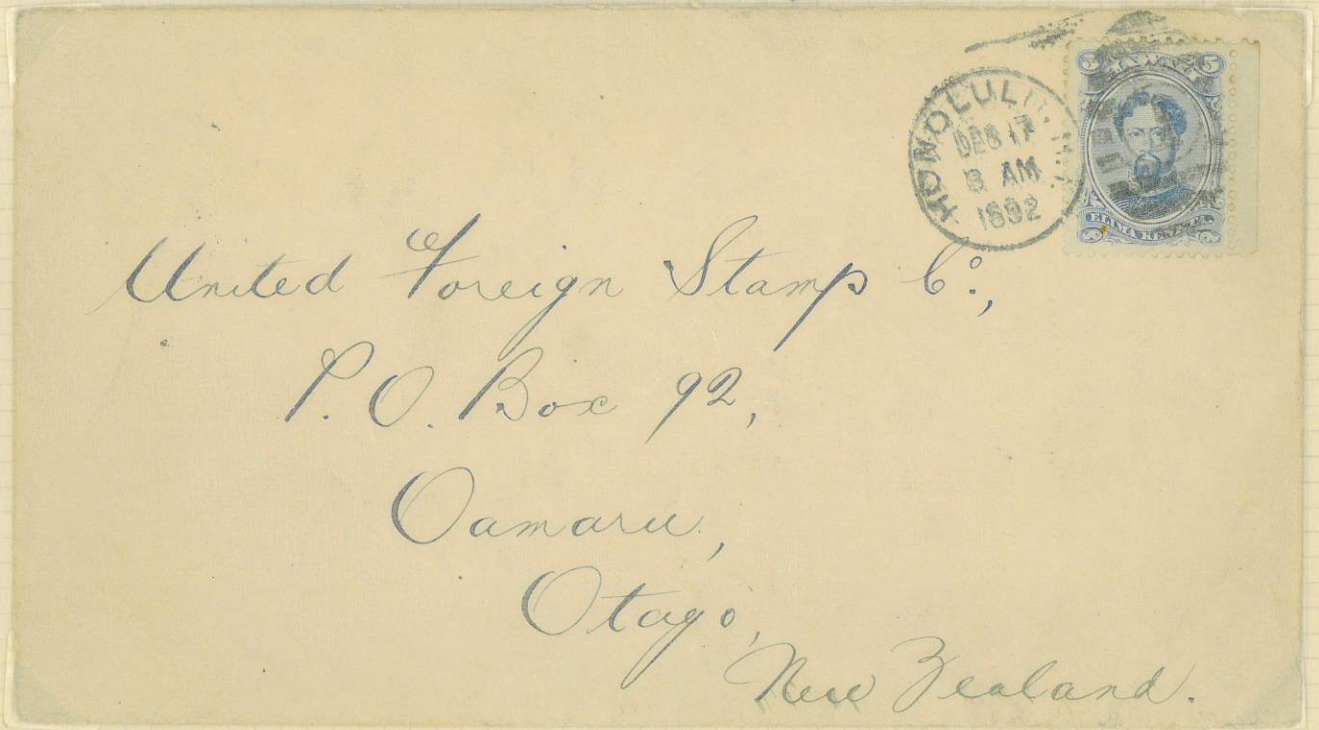 5 HAWAII 5
HONOLULU. H.I.
DEC 17
8 AM
1892
ELIMA KENETA
United Foreign Stamp Co.,
P. O. Box 92,
Oamaru,
Otago,
New Zealand.